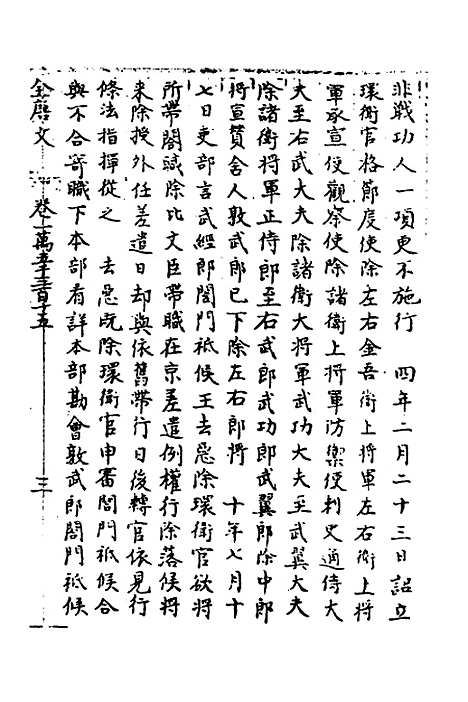 非戰功人一項更不施行　四年二月二十三日詔立
環衛官格節度使除左右金吾衛上將軍左右衛上將
軍承宣使觀察使除諸衛上將軍防禦使刺史通侍大
夫至右武大夫除諸衛大將軍武功大夫至武翼大夫
除諸衛將軍正侍郎至右武郎武功郎武翼郎除中郎
將宣贊舍人敦武郎已下除左右郎將　十年七月十
七日吏部言武經郎閤門祗候王去惡除環衛官欲將
所帶閤職除比文臣帶職在京差遣例權行除落候將
來除授外任差遣日却與依舊帶行日後轉官依見行
條法指揮從之　去惡既除環衛官申審閤門祗候合
與不合寄職下本部看詳本部勘會敦武郎閤門祗候
全唐文　卷一萬五千三百十五　三